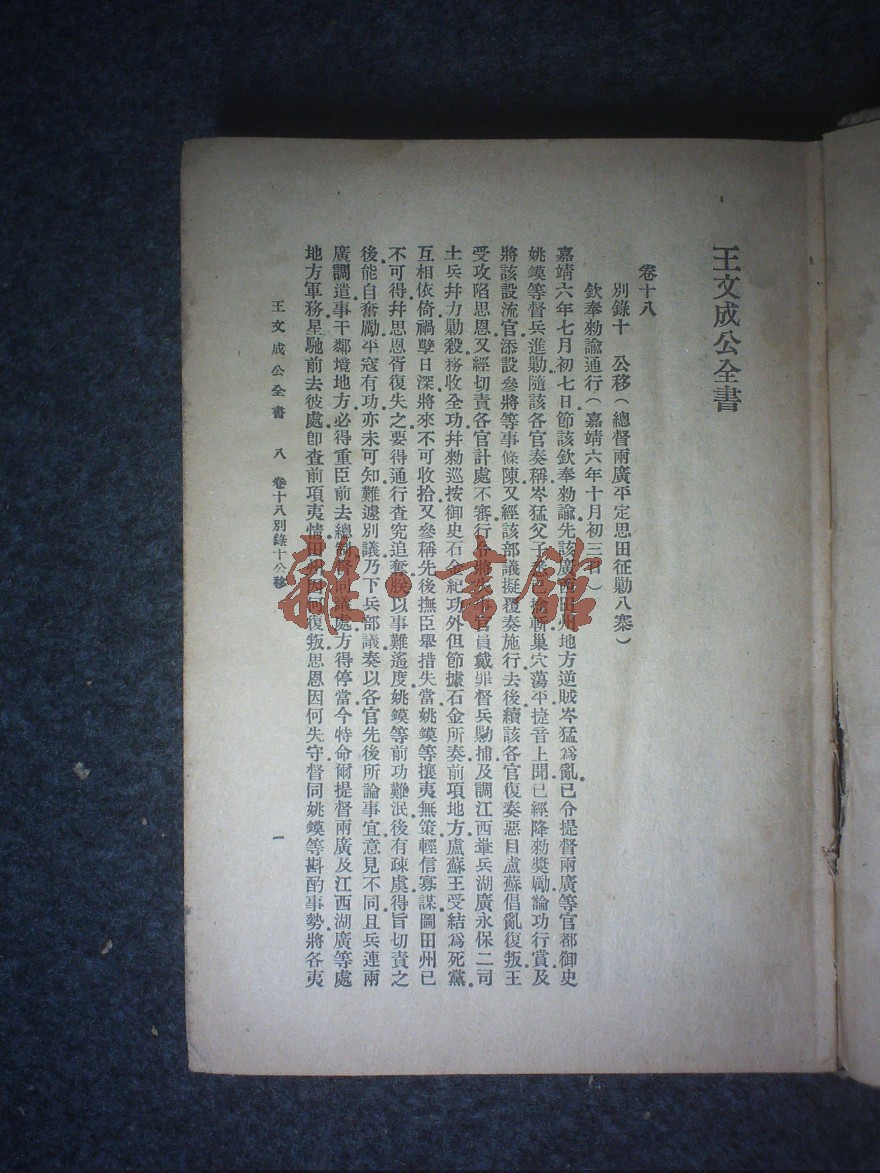 王文成公全書
卷十八
別錄十　公移（總督兩廣平定思田征勦八寨）
欽奉勅諭通行（嘉靖六年十月初三日）
嘉靖六年七月初七日節該欽奉勅諭先該廣西田州地方逆賊岑猛爲亂已令提督兩廣等官都御史
姚鏌等督兵進勦隨該各官奏稱岑猛父子悉已擒斬巢穴蕩平捷音上聞已經降勅奬勵論功行賞及
將該設流官添設參將等事條陳又經該部議擬覆奏施行去後續該各官復奏惡目盧蘇倡亂復叛王
受攻陷思恩又經切責各官計處不審行令將失事官員戴罪督兵勦捕及調江西峯兵湖廣永保二司
土兵幷力勦殺務收全功幷勅巡按御史石金紀功外但節據石金所奏前項地方盧蘇王受結爲死黨
互相依倚禍孽日深將來不可收拾又參稱先後撫臣舉措失當姚鏌等攘夷無策輕信寡謀圖田州已
不可得幷思恩胥復失之要得通行查究追奪朕以事難遙度姚鏌等前功難泯後有疎虞得旨切責之
後能自奮勵平寇有功亦未可知難遽別議乃下兵部議奏以各官先後所論事宜意見不同且兵連兩
廣調遣事干鄰境地方必得重臣前去總制督同議處方得停當今特命爾提督兩廣及江西湖廣等處
地方軍務星馳前去彼處卽查前項夷情田州因何復叛思恩因何失守督同姚鏌等斟酌事勢將各夷
王文成公全書　八　卷十八別錄十公移　一
雜·書館